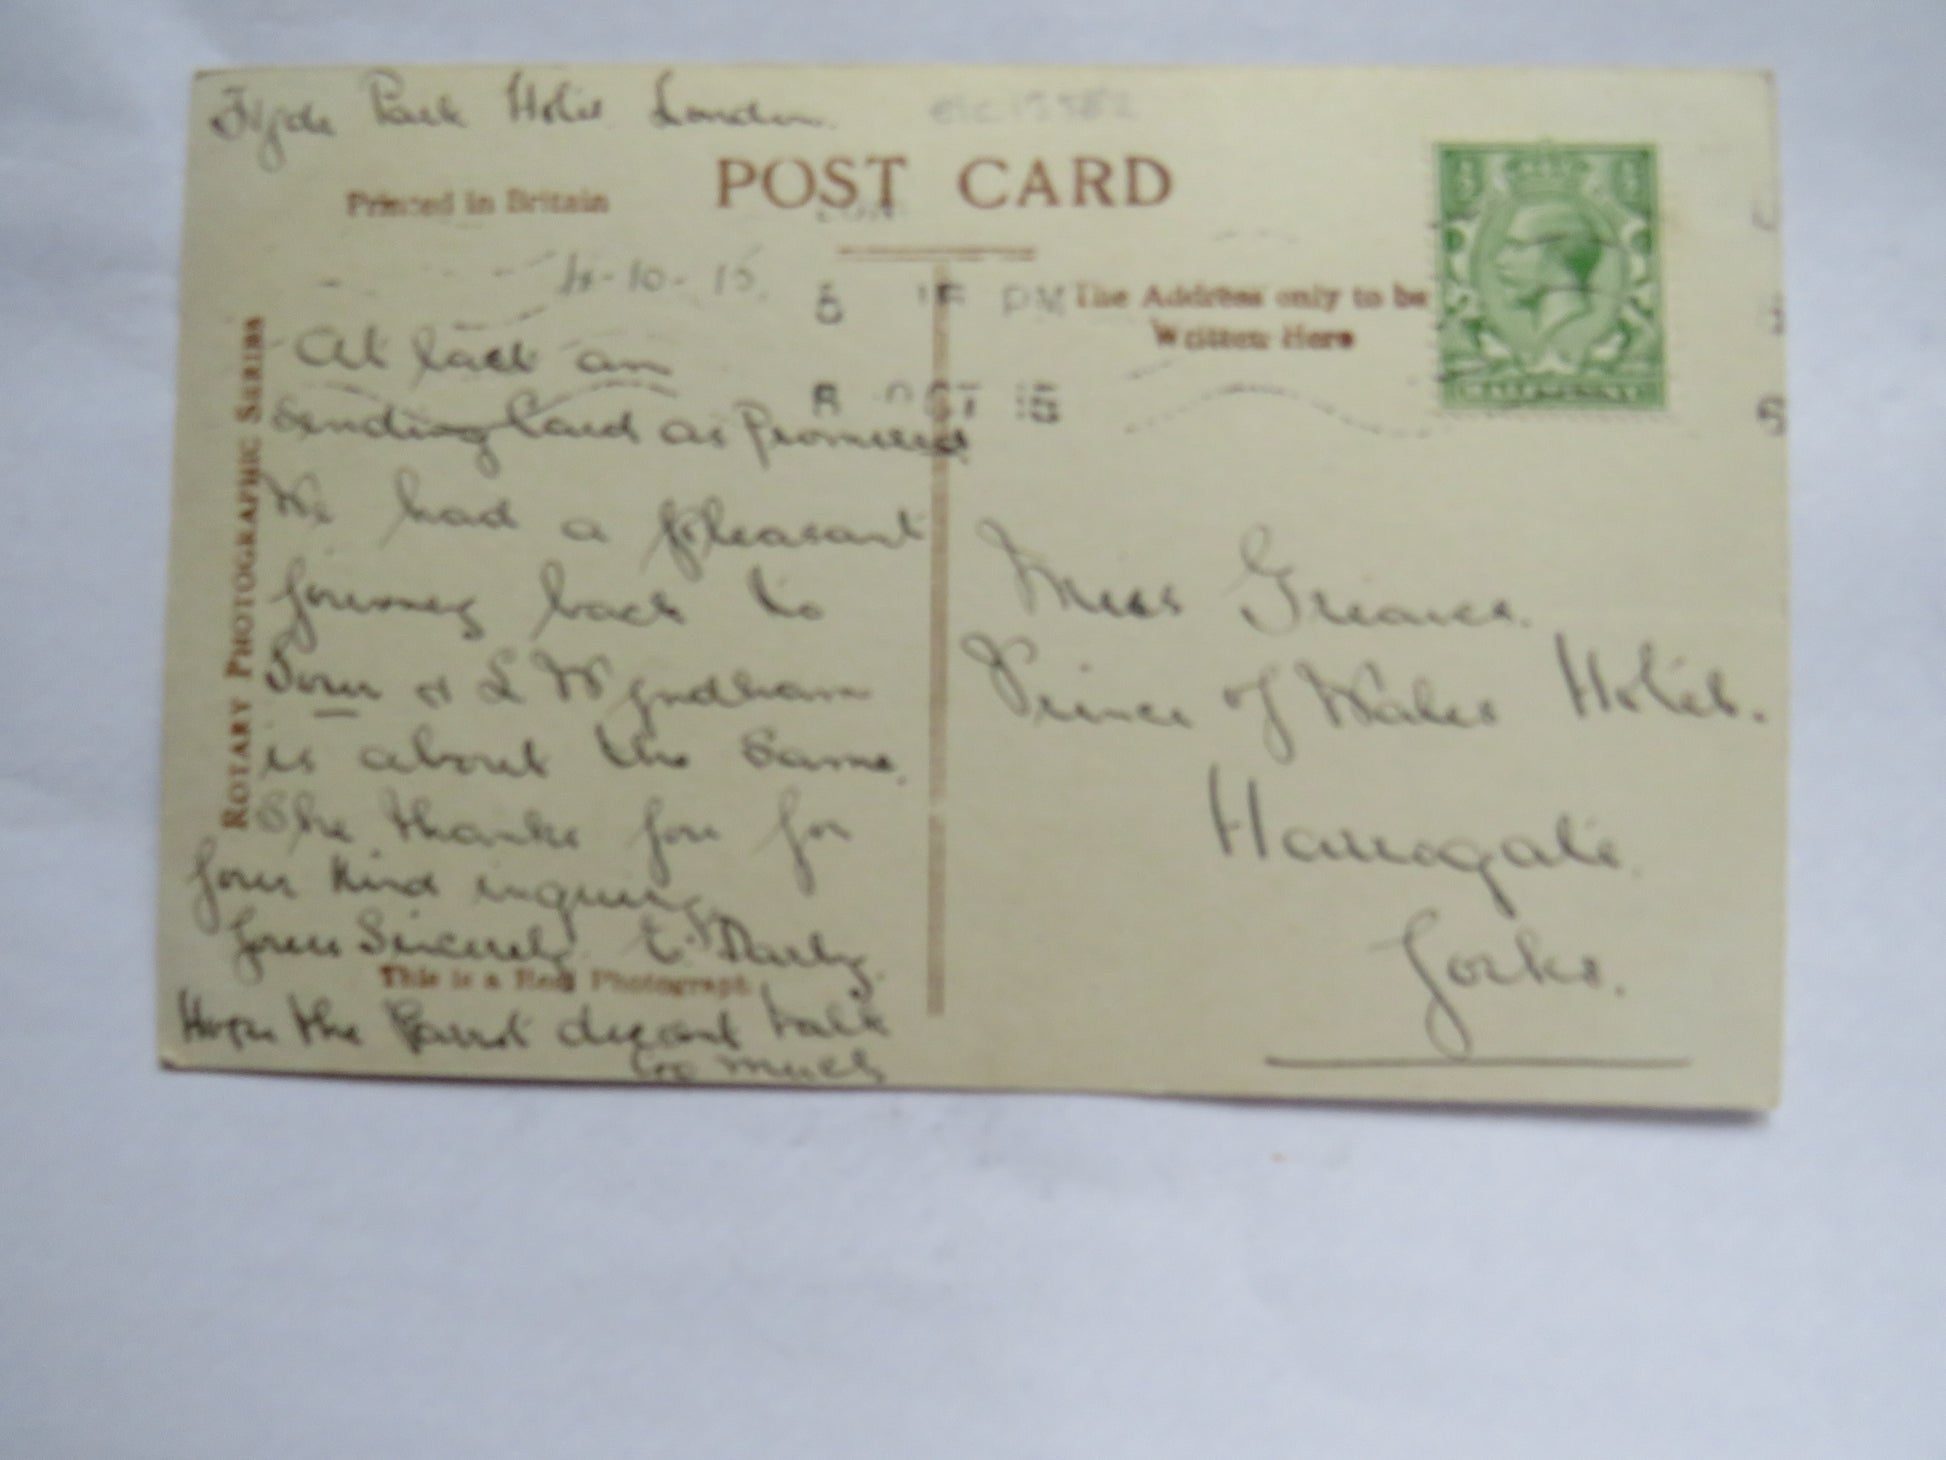 Hyde Park Hotel London.
POST CARD
Printed in Britain
4-10-15.
5 15 PM
OCT 15
The Address only to be
Written Here
HALFPENNY
ROTARY PHOTOGRAPHIC SERIES
At last am
Sending Card as Promised.
We had a pleasant
journey back to
Town & L Wyndham
is about the same.
She thanks you for
your kind inquiry.
yours Sincerely E. Darby.
This is a Real Photograph
Hope the Parrot doesant talk
too much
Miss Greaves.
Prince of Wales Hotel.
Harrogate.
Yorks.